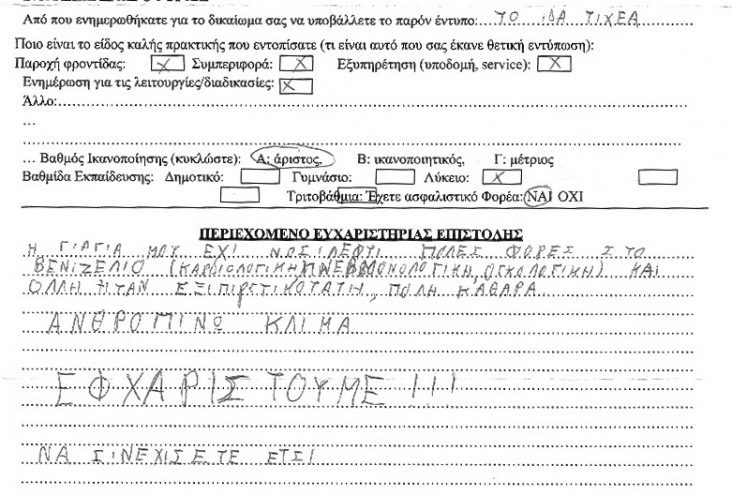 Από που ενημερωθήκατε για το δικαίωμα σας να υποβάλλετε το παρόν έντυπο: ΤΟ ΙΔΑ ΤΙΧΕΑ
Ποιο είναι το είδος καλής πρακτικής που εντοπίσατε (τι είναι αυτό που σας έκανε θετική εντύπωση):
Παροχή φροντίδας: X Συμπεριφορά: X Εξυπηρέτηση (υποδομή, service): X
Ενημέρωση για τις λειτουργίες/διαδικασίες: X
Άλλο:
...
... Βαθμός Ικανοποίησης (κυκλώστε): Α: άριστος, Β: ικανοποιητικός, Γ: μέτριος
Βαθμίδα Εκπαίδευσης: Δημοτικό: Γυμνάσιο: Λύκειο: X
Τριτοβάθμια: Έχετε ασφαλιστικό Φορέα: ΝΑΙ ΟΧΙ
ΠΕΡΙΕΧΟΜΕΝΟ ΕΥΧΑΡΙΣΤΗΡΙΑΣ ΕΠΙΣΤΟΛΗΣ
Η ΓΙΑΓΙΑ ΜΟΥ ΕΧΙ ΝΟΣΙΛΕΦΤΙ ΠΟΛΕΣ ΦΟΡΕΣ ΣΤΟ
ΒΕΝΙΖΕΛΙΟ (ΚΑΡΔΙΟΛΟΓΙΚΗ, ΠΝΕΒΜΟΝΟΛΟΓΙΚΗ, ΟΓΚΟΛΟΓΙΚΗ) ΚΑΙ
ΟΛΛΗ ΗΤΑΝ ΕΞΙΠΙΡΕΤΙΚΟΤΑΤΗ, ΠΟΛΗ ΚΑΘΑΡΑ
ΑΝΘΡΟΠΙΝΩ ΚΛΙΜΑ
ΕΦΧΑΡΙΣΤΟΥΜΕ !!!
ΝΑ ΣΙΝΕΧΙΣΕΤΕ ΕΤΣΙ